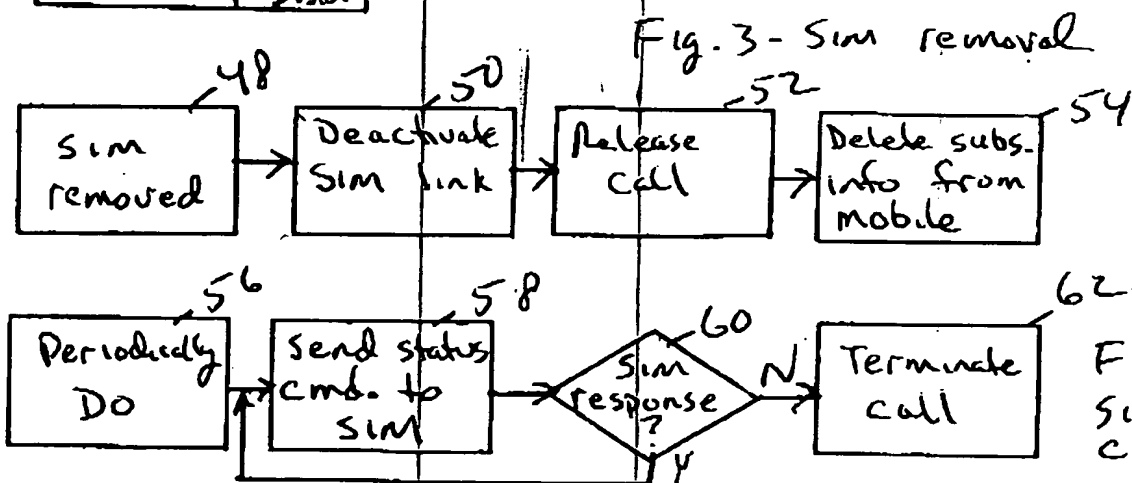 Fig. 3 - Sim removal
48
50
52
54
Sim
removed
Deactivate
Sim link
Release
call
Delete subs.
info from
mobile
56
58
60
62
Periodically
DO
Send status
cmd. to
SIM
Sim
response
?
N
Y
Terminate
call